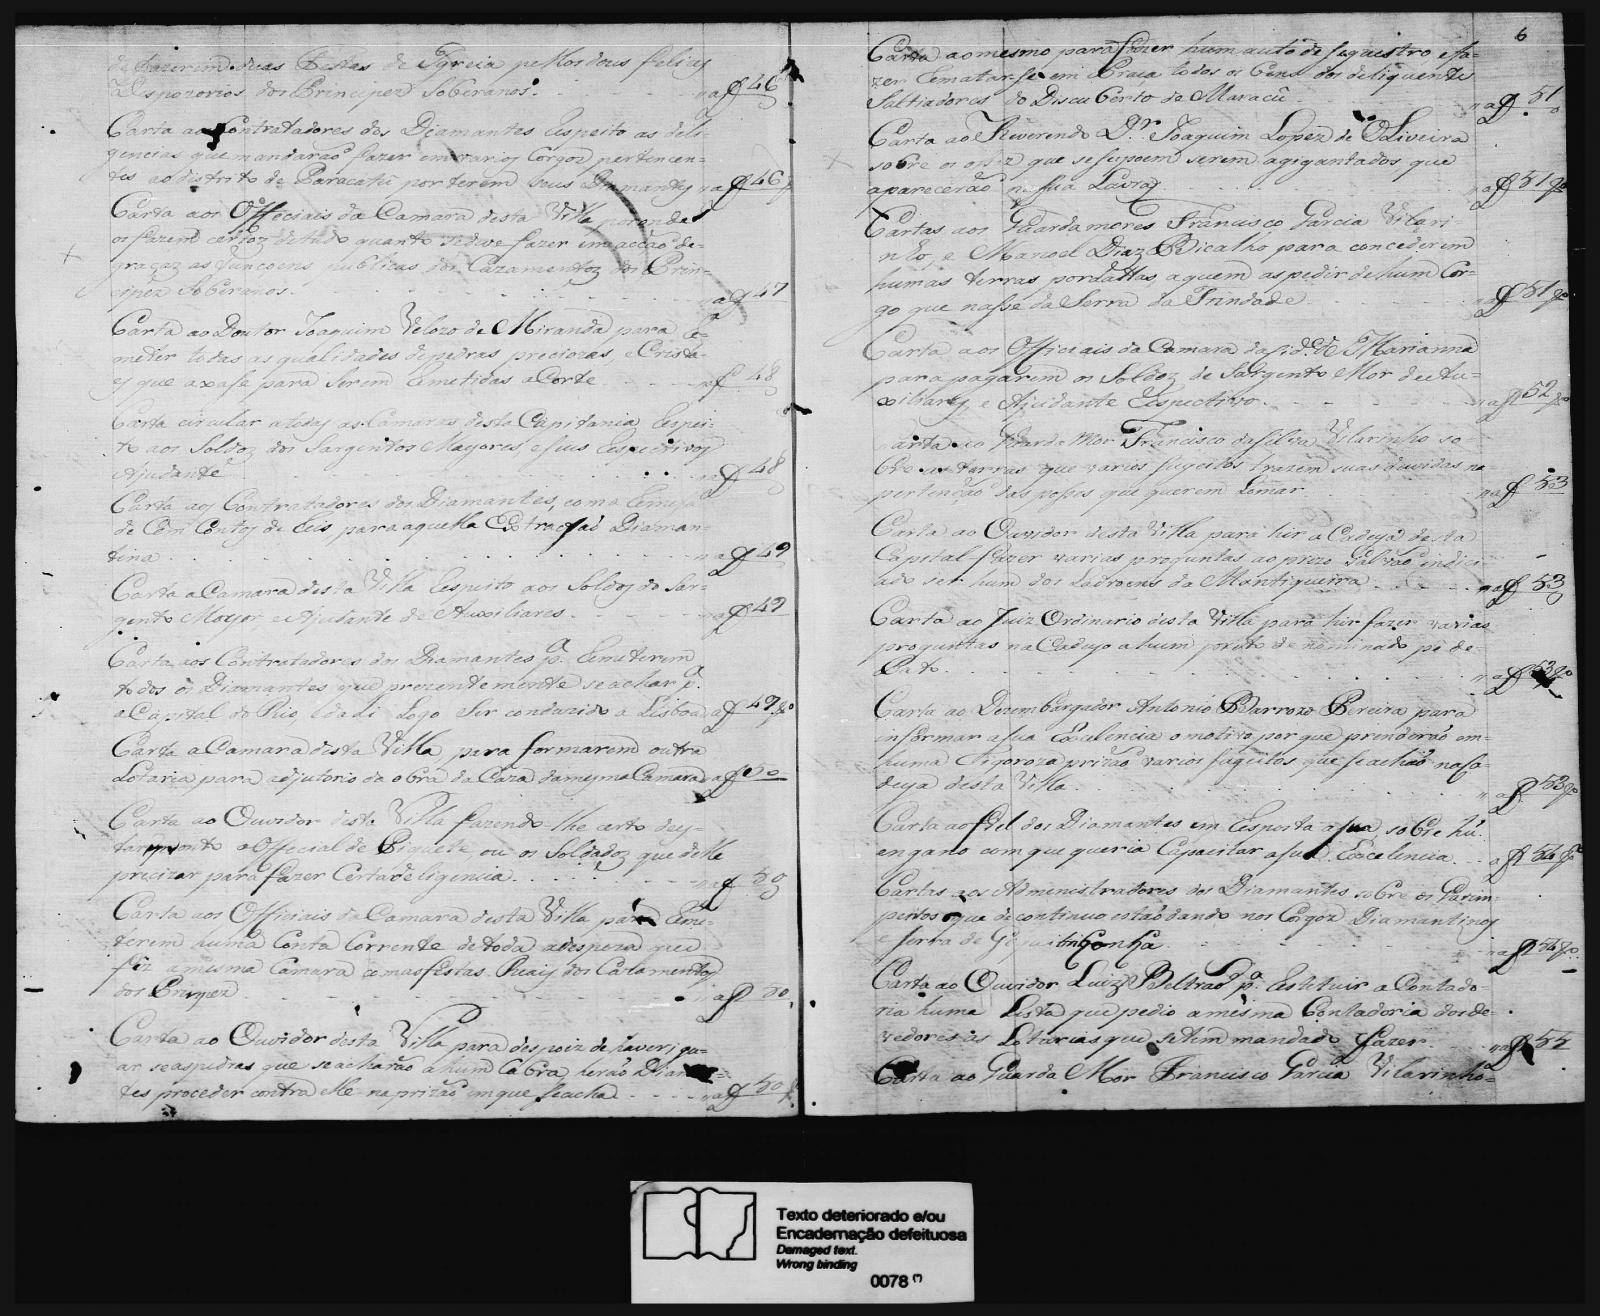 de fazerem duas Festas de Igreia pellos dous felices
Despozorios dos Principes Soberanos. - - - na f 46
Carta aos Contratadores dos Diamantes Respeito as deli-
gencias que mandarão fazer em varios Corgos pertencen-
tes ao distrito de Paracatú por terem seus Diamantes na f 46 vo
Carta aos Officiais da Camara desta Villa
os fazem certos de tudo quanto se deve fazer em acção de
graças as funcoens publicas dos Cazamentos dos Prin-
cipes Soberanos. - - - na f 47
Carta ao Doutor Joaquim Velozo de Miranda para Re-
meter todas as qualidades de pedras preciozas, e Crista-
es que axase para Serem Remetidas a Corte - - - na f 48
Carta circular a todas as Camaras desta Capitania Respei-
to aos Soldos dos Sargentos Mayores, e seus Respectivos
Ajudantes - - - na f 48
Carta aos Contratadores dos Diamantes, com a Remesa
de Cem Contos de Reis, para aquella Extração Diaman-
tina - - - na f 49
Carta a Camara desta Villa Respeito aos Soldos do Sar-
gento Mayor e Ajudante de Auxiliares. - - - na f 49
Carta aos Contratadores dos Diamantes pa. Remeterem
todos os Diamantes que prezentemente se achar pa.
a Capital do Rio, e dali Logo Ser conduzido a Lisboa na f 49 vo
Carta a Camara desta Villa para formarem outra
Lotaria para adjutorio da obra da Caza da mesma Camara na f 50
Carta ao Ouvidor desta Villa fazendo-lhe certo dey-
o Official de Piquete, ou os Soldados que delle
precizar para fazer Certa deligencia. - - - na f 50
Carta aos Officiais da Camara desta Villa para Reme-
terem huma Conta Corrente de toda a despeza que
fez a mesma Camara com as festas Reais dos Cazamentos
dos Principes - - - na f 50
Carta ao Ouvidor desta Villa para despois de haveri gu-
ar se as pedras que se acharão a hum Cabra herão Diaman-
tes proceder contra elle na prizão em que se acha - - - na f 50 vo
6
Carta ao mesmo para fazer hum auto de sequestro e fa-
zer Rematar-se em Praça todos os bens dos deliquentes
Saltiadores do Discuberto de Maracú - - - na f 51
Carta ao Reverendo Dr. Joaquim Lopez de Oliveira
sobre os ossos que se supoem serem agigantados que
aparecerão na sua Lavra - - - na f 51 vo
Cartas aos Guardamores Francisco Garcia Vilari-
nho, e Manoel Diaz Bicalho para concederem
humas terras por dattas a quem as pedir de hum Cor-
go que nasse da Serra da Trindade - - - na f 51 vo
Carta aos Officiais da Camara da Cide. de Marianna
para pagarem os Soldos de Sargento Mor de Au-
xiliares, e Ajudante Respectivo - - - na f 52 vo
Carta ao Guarda Mor Francisco da Silva Vilarinho so-
bre as terras que varios sugeitos trazem suas duvidas na
pertenção das posses que querem tomar - - - na f 53
Carta ao Ouvidor desta Villa para hir a Cadeya desta
Capital fazer varias proguntas ao prezo Galvão indici-
ado ser hum dos Ladroens da Mantiqueira - - - na f 53
Carta ao Juiz Ordinario desta Villa para hir fazer varias
proguntas na Cadeya a hum preto denominado pé de
Pato - - - na f 53 vo
Carta ao Dezembargador Antonio Barrozo Pereira para
informar a sua Excelencia o motivo por que prenderão em
huma Rigoroza prizão varios sugeitos que se achão na Ca-
deya desta Villa - - - na f 53 vo
Carta ao fiel dos Diamantes em Resposta a sua, sobre hú
engano com que queria Capacitar a sua Excelencia - - - a f 54 vo
Cartas aos Administradores dos Diamantes sobre os Garim-
peiros que de continuo estão dando nos Corgos Diamantinos
e serra de - - - na f 54 vo
Carta ao Ouvidor Luiz Beltrão pa. Restituir a Contado-
ria huma Lista que pedio a mesma Contadoria dos de
vedores as Lotarias que se tem mandado fazer - - - na f 55
Carta ao Guarda Mor Francisco Garcia Vilarinho=
Texto deteriorado e/ou
Encadernação defeituosa
Damaged text.
Wrong binding
0078 (*)